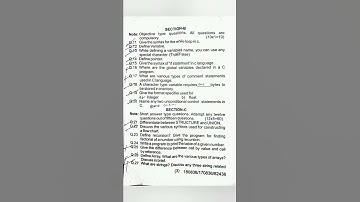 SECTION-B
Note: Objective type questions. All questions are
compulsory. (10x1=10)
Q.11 Give the syntax for the while loop in c.
Q.12 Define Variable.
Q.13 While defining a variables name, you can use any
special character (True/False)
Q.14 Define pointer.
Q.15 Give the syntax of "if statement" in c language
Q.16 Where are the global variables declared in a C
program.
Q.17 What are various types of comment statements
used in C language.
Q.18 A character type variable requires bytes to
be stored in memory.
Q.19 Give the format specified for
a) Integer b) float
Q.20 Name any two unconditional control statements in
SECTION-C
Note: Short answer type questions. Attempt any twelve
questions out of fifteen questions. (12x5=60)
Q.21 Differentiate between STRUCTURE and UNION.
Q.22 Discuss the various symbols used for constructing
a flow chart.
Q.23 Define recursion? Give the program for finding
factorial of a number using recursion.
Q.24 Write a program to print the table of a given number.
Q.25 Give the difference between call by value and call
by reference.
Q.26 Define Array. What are the various types of arrays?
Discuss in brief.
Q.27 What are strings? Discuss any three string related
(2) 180836/170836/62436